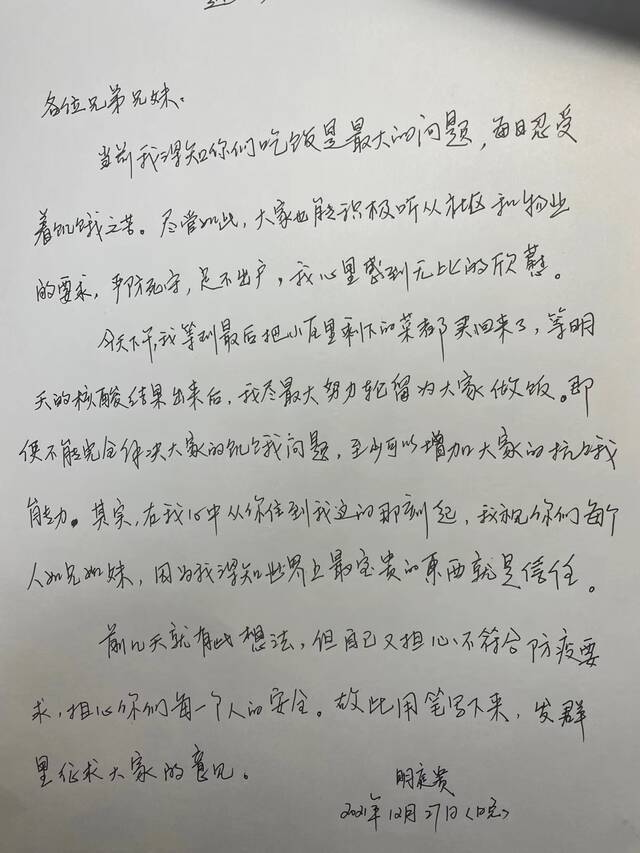 各位兄弟兄妹:
当前我得知你们吃饭是最大的问题,每日忍受
着饥饿之苦。尽管如此,大家也能积极听从社区和物业
的要求,严防死守,足不出户,我心里感到无比的欣慰。
今天下午,我等到最后把小店里剩下的菜都买回来了,等明
天的核酸结果出来后,我尽最大努力轮留为大家做饭。即
便不能完全解决大家的饥饿问题,至少可以增加大家的抗饿
能力。其实,在我心中从你住到我这的那刻起,我视你们每个
人如兄如妹,因为我得知世界上最宝贵的東西就是信任。
前几天就有此想法,但自己又担心不符合防疫要
求,担心你们每一个人的安全。故此用笔写下来,发群
里征求大家的意见。
明庭贵
2021年12月27日